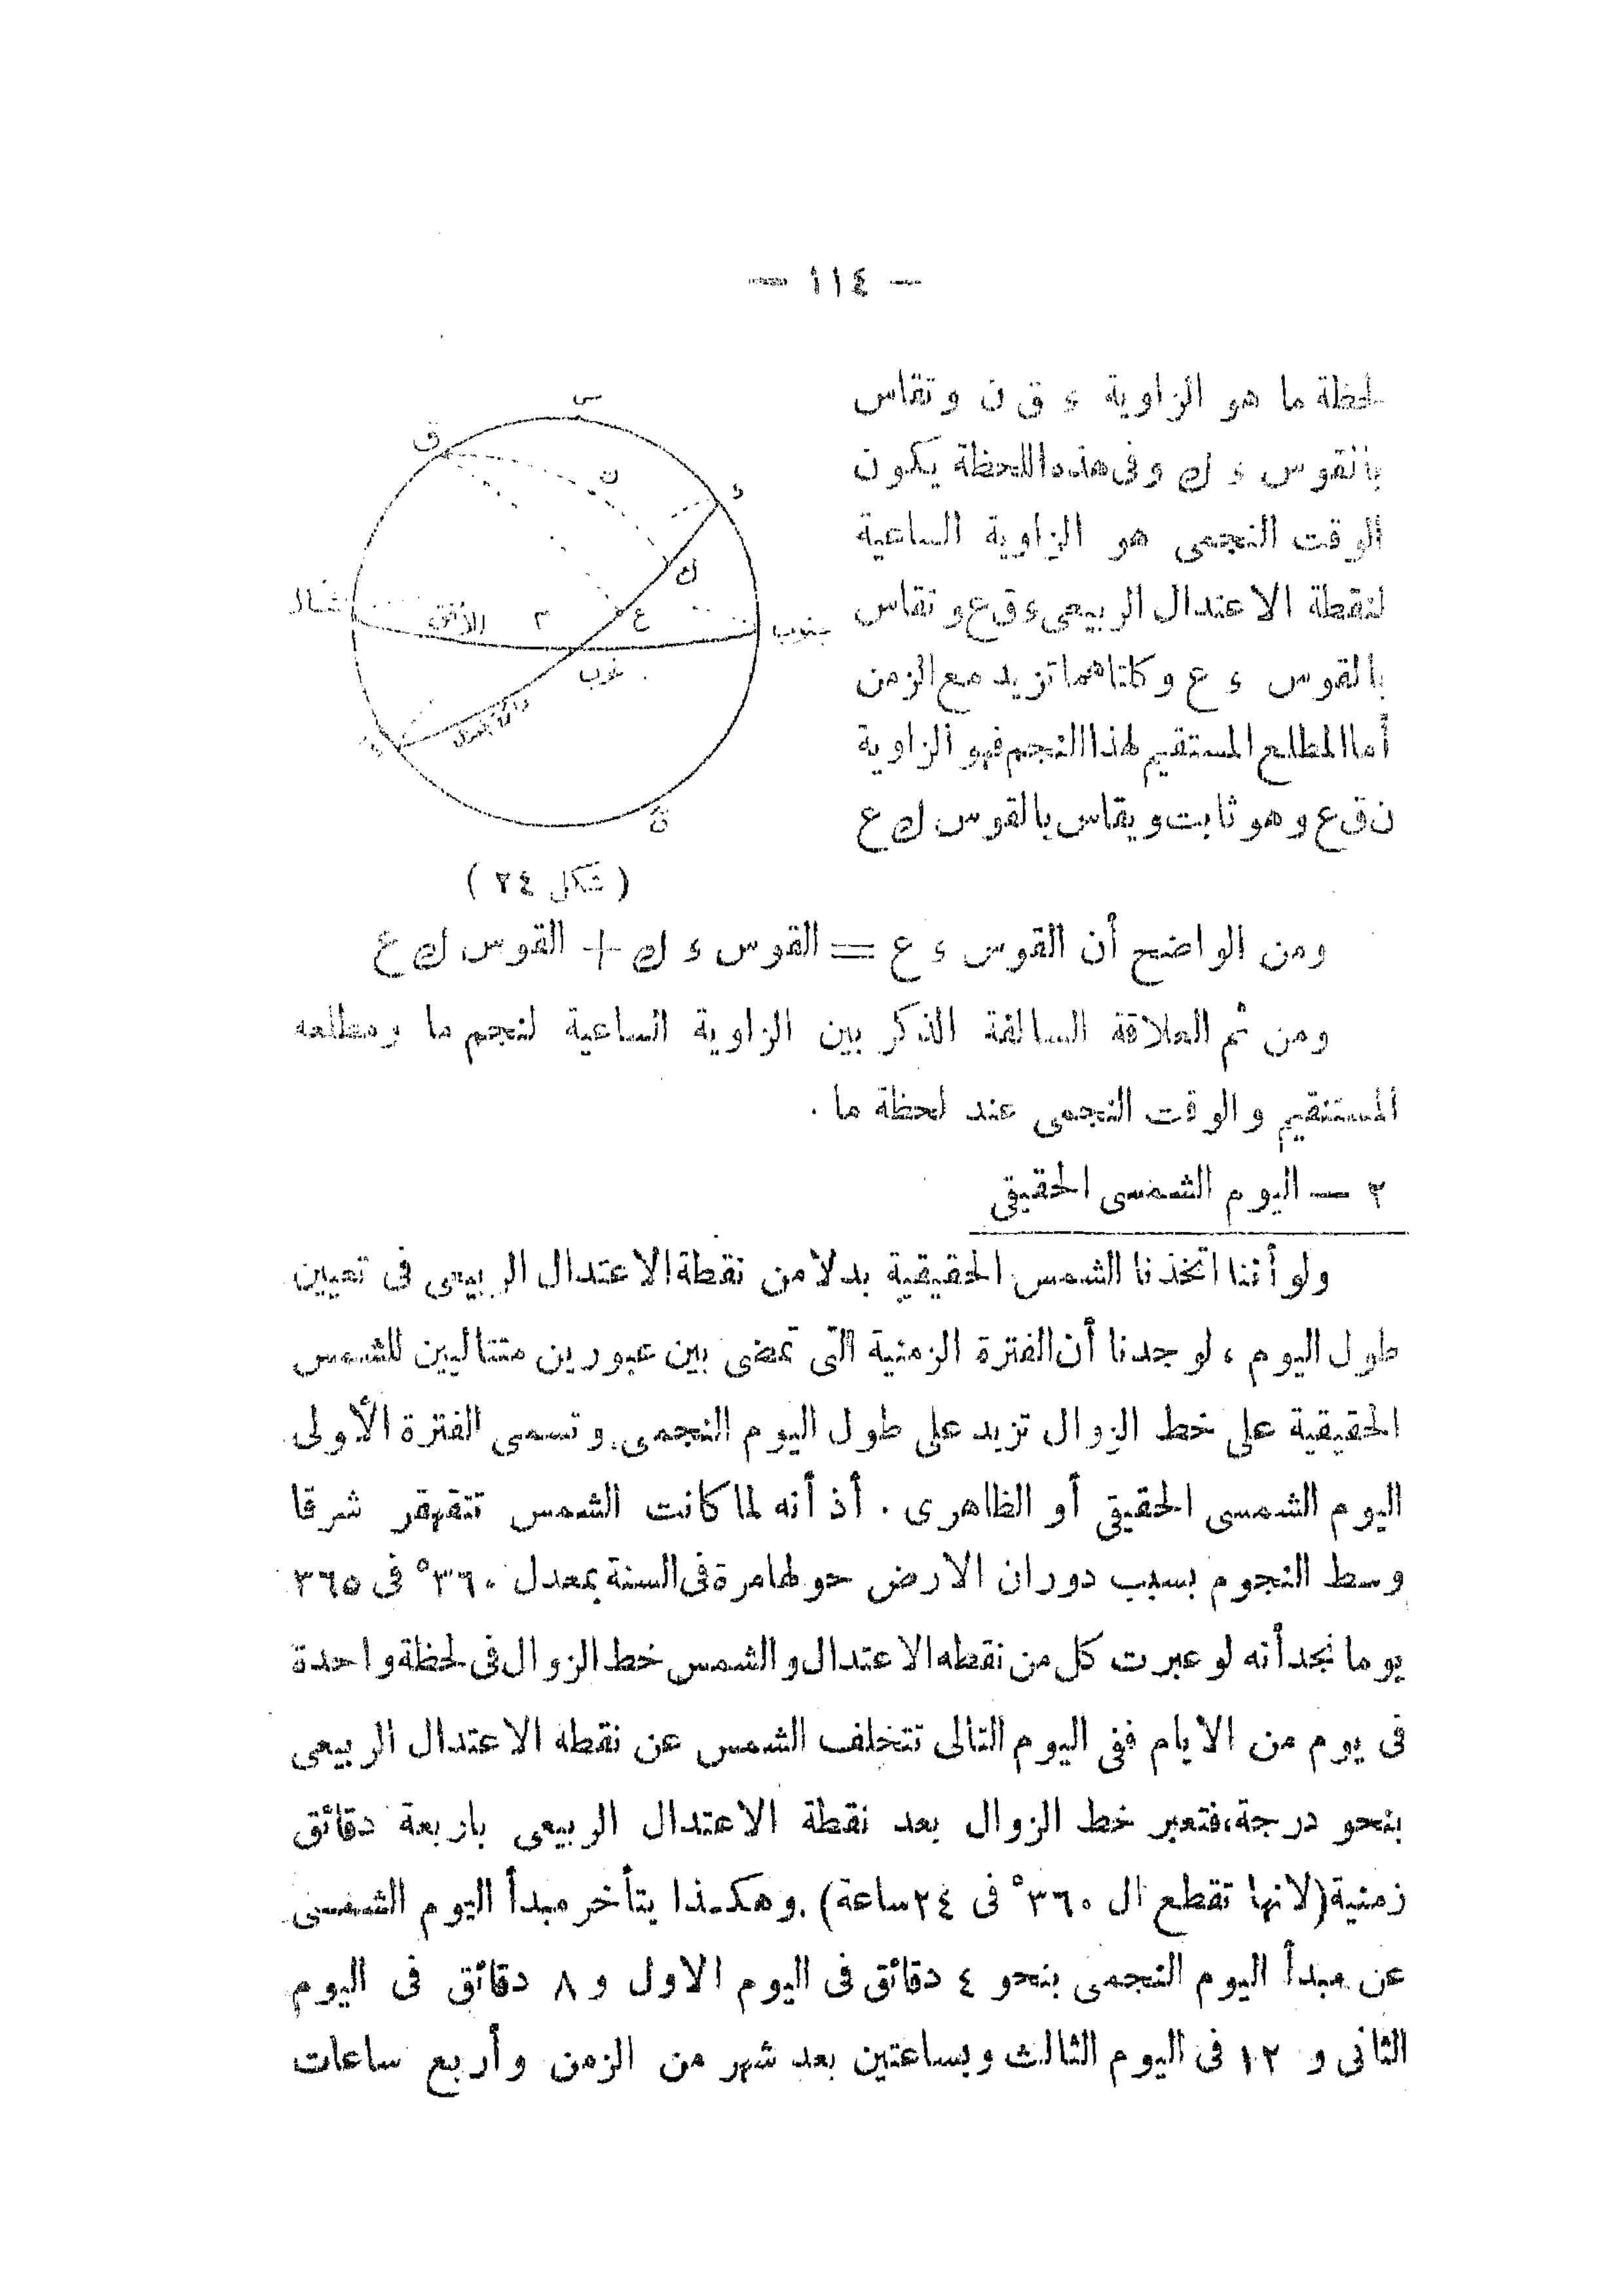 — ١١٤ —
لحظة ما هو الزاوية ء ق ن وتقاس
بالقوس ء ك وفى هذه اللحظة يكون
الوقت النجمى هو الزاوية الساعية
لنقطة الاعتدال الربيعى ء ق ع وتقاس
بالقوس ء ع وكلتاهما تزيد مع الزمن
أما المطلع المستقيم لهذا النجم فهو الزاوية
ن ق ع وهو ثابت ويقاس بالقوس ك ع
س
ق
ن
ء
ك
شمال
الأفق
م
ع
جنوب
غرب
قَ
( شكل ٢٤ )
ومن الواضح أن القوس ء ع = القوس ء ك + القوس ك ع
ومن ثم العلاقة السالفة الذكر بين الزاوية الساعية لنجم ما ومطلعه
المستقيم والوقت النجمى عند لحظة ما .
٢ — اليوم الشمسى الحقيقى
ولو أننا اتخذنا الشمس الحقيقية بدلا من نقطة الاعتدال الربيعى فى تعيين
طول اليوم ، لوجدنا أن الفترة الزمنية التى تمضى بين عبورين متتاليين للشمس
الحقيقية على خط الزوال تزيد على طول اليوم النجمى. وتسمى الفترة الأولى
اليوم الشمسى الحقيقى أو الظاهرى . أذ أنه لما كانت الشمس تتقهقر شرقا
وسط النجوم بسبب دوران الارض حولها مرة فى السنة بمعدل ٣٦٠° فى ٣٦٥
يوما نجد أنه لو عبرت كل من نقطه الاعتدال والشمس خط الزوال فى لحظة واحدة
فى يوم من الايام ففى اليوم التالى تتخلف الشمس عن نقطه الاعتدال الربيعى
بنحو درجة، فتعبر خط الزوال بعد نقطة الاعتدال الربيعى باربعة دقائق
زمنية (لانها تقطع ال ٣٦٠° فى ٢٤ ساعة) . وهكذا يتأخر مبدأ اليوم الشمسى
عن مبدأ اليوم النجمى بنحو ٤ دقائق فى اليوم الاول و ٨ دقائق فى اليوم
الثانى و ١٢ فى اليوم الثالث وبساعتين بعد شهر من الزمن وأربع ساعات